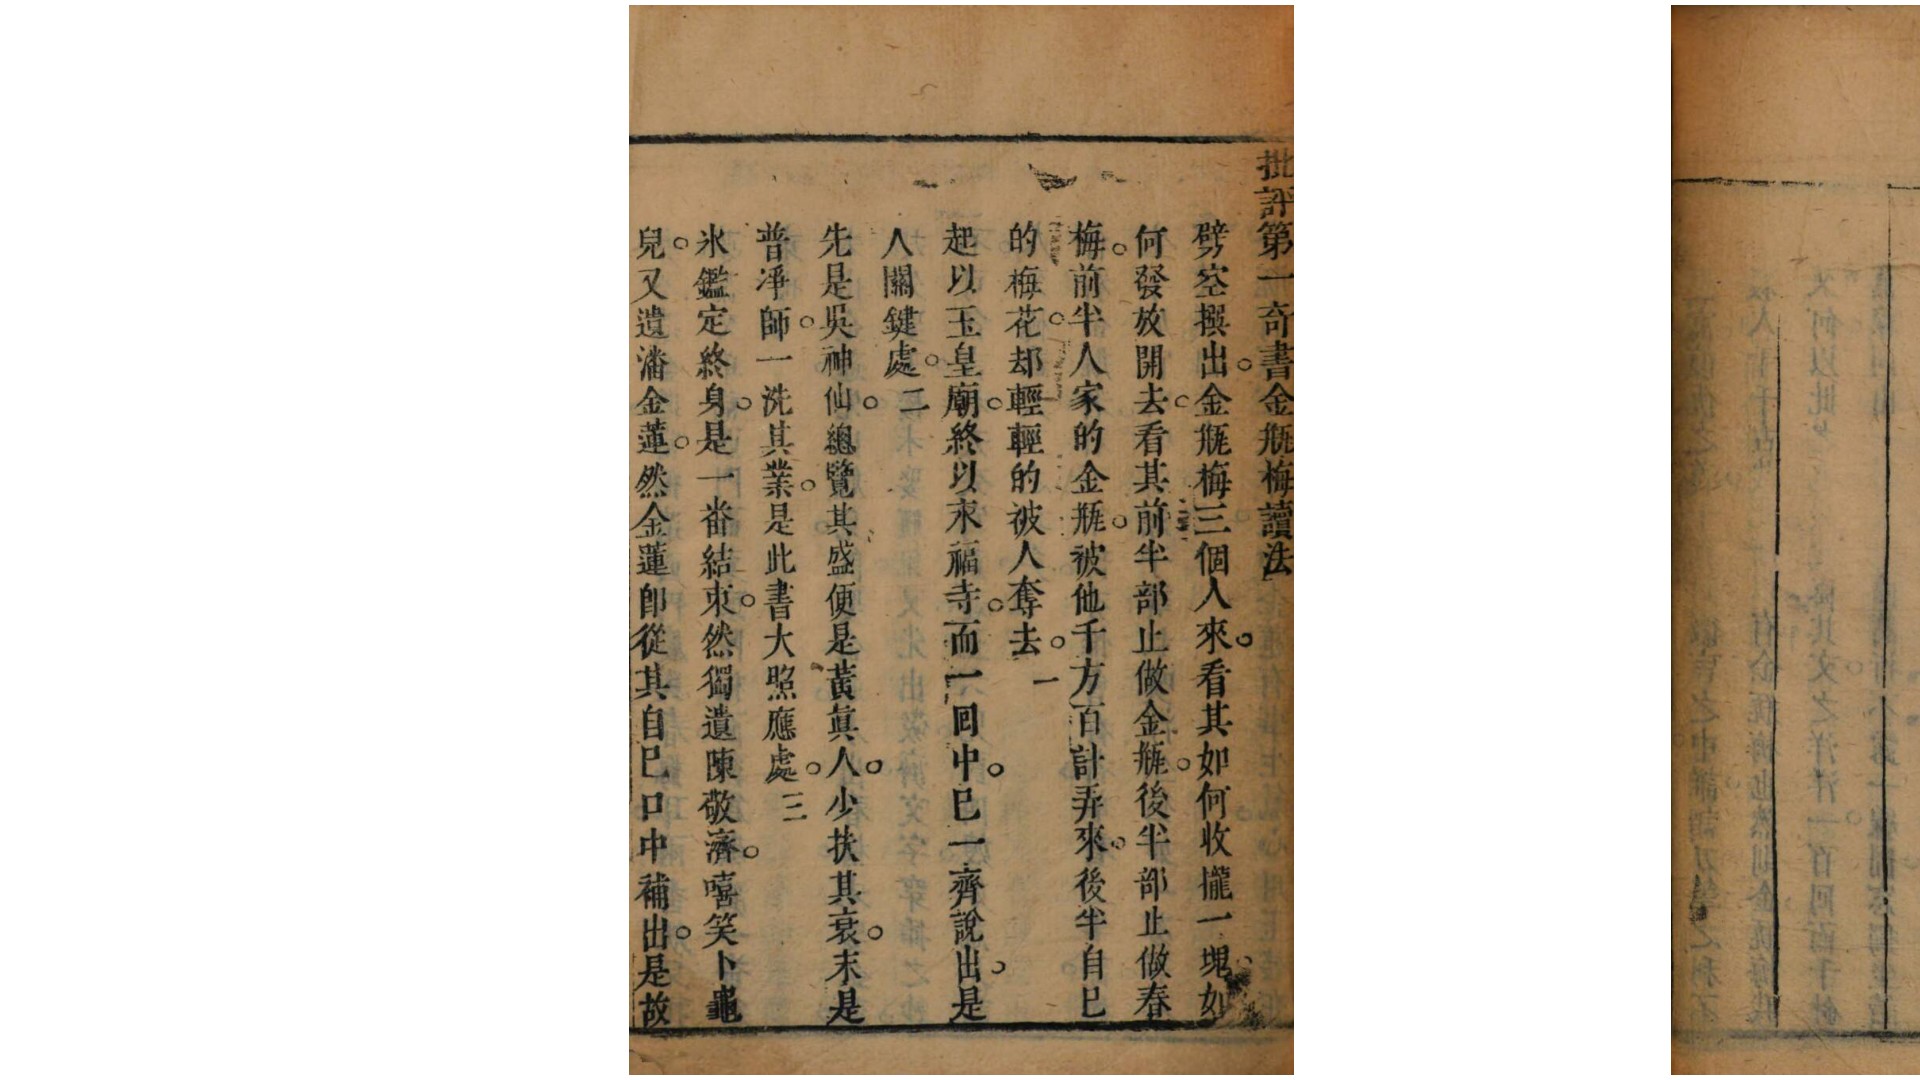 批評第一奇書金瓶梅讀法
劈空撰出金瓶梅三個人來看其如何收攏一塊如
何發放開去看其前半部止做金瓶後半部止做春
梅前半人家的金瓶被他千方百計弄來後半自已
的梅花却輕輕的被人奪去一
起以玉皇廟終以永福寺而一回中已一齊說出是
人關鍵處二
先是吳神仙總覽其盛便是黃眞人少扶其衰末是
普凈師一洗其業是此書大照應處三
氷鑑定終身是一番結束然獨遺陳敬濟嘻笑卜龜
兒又遺潘金蓮然金蓮卽從其自已口中補出是故